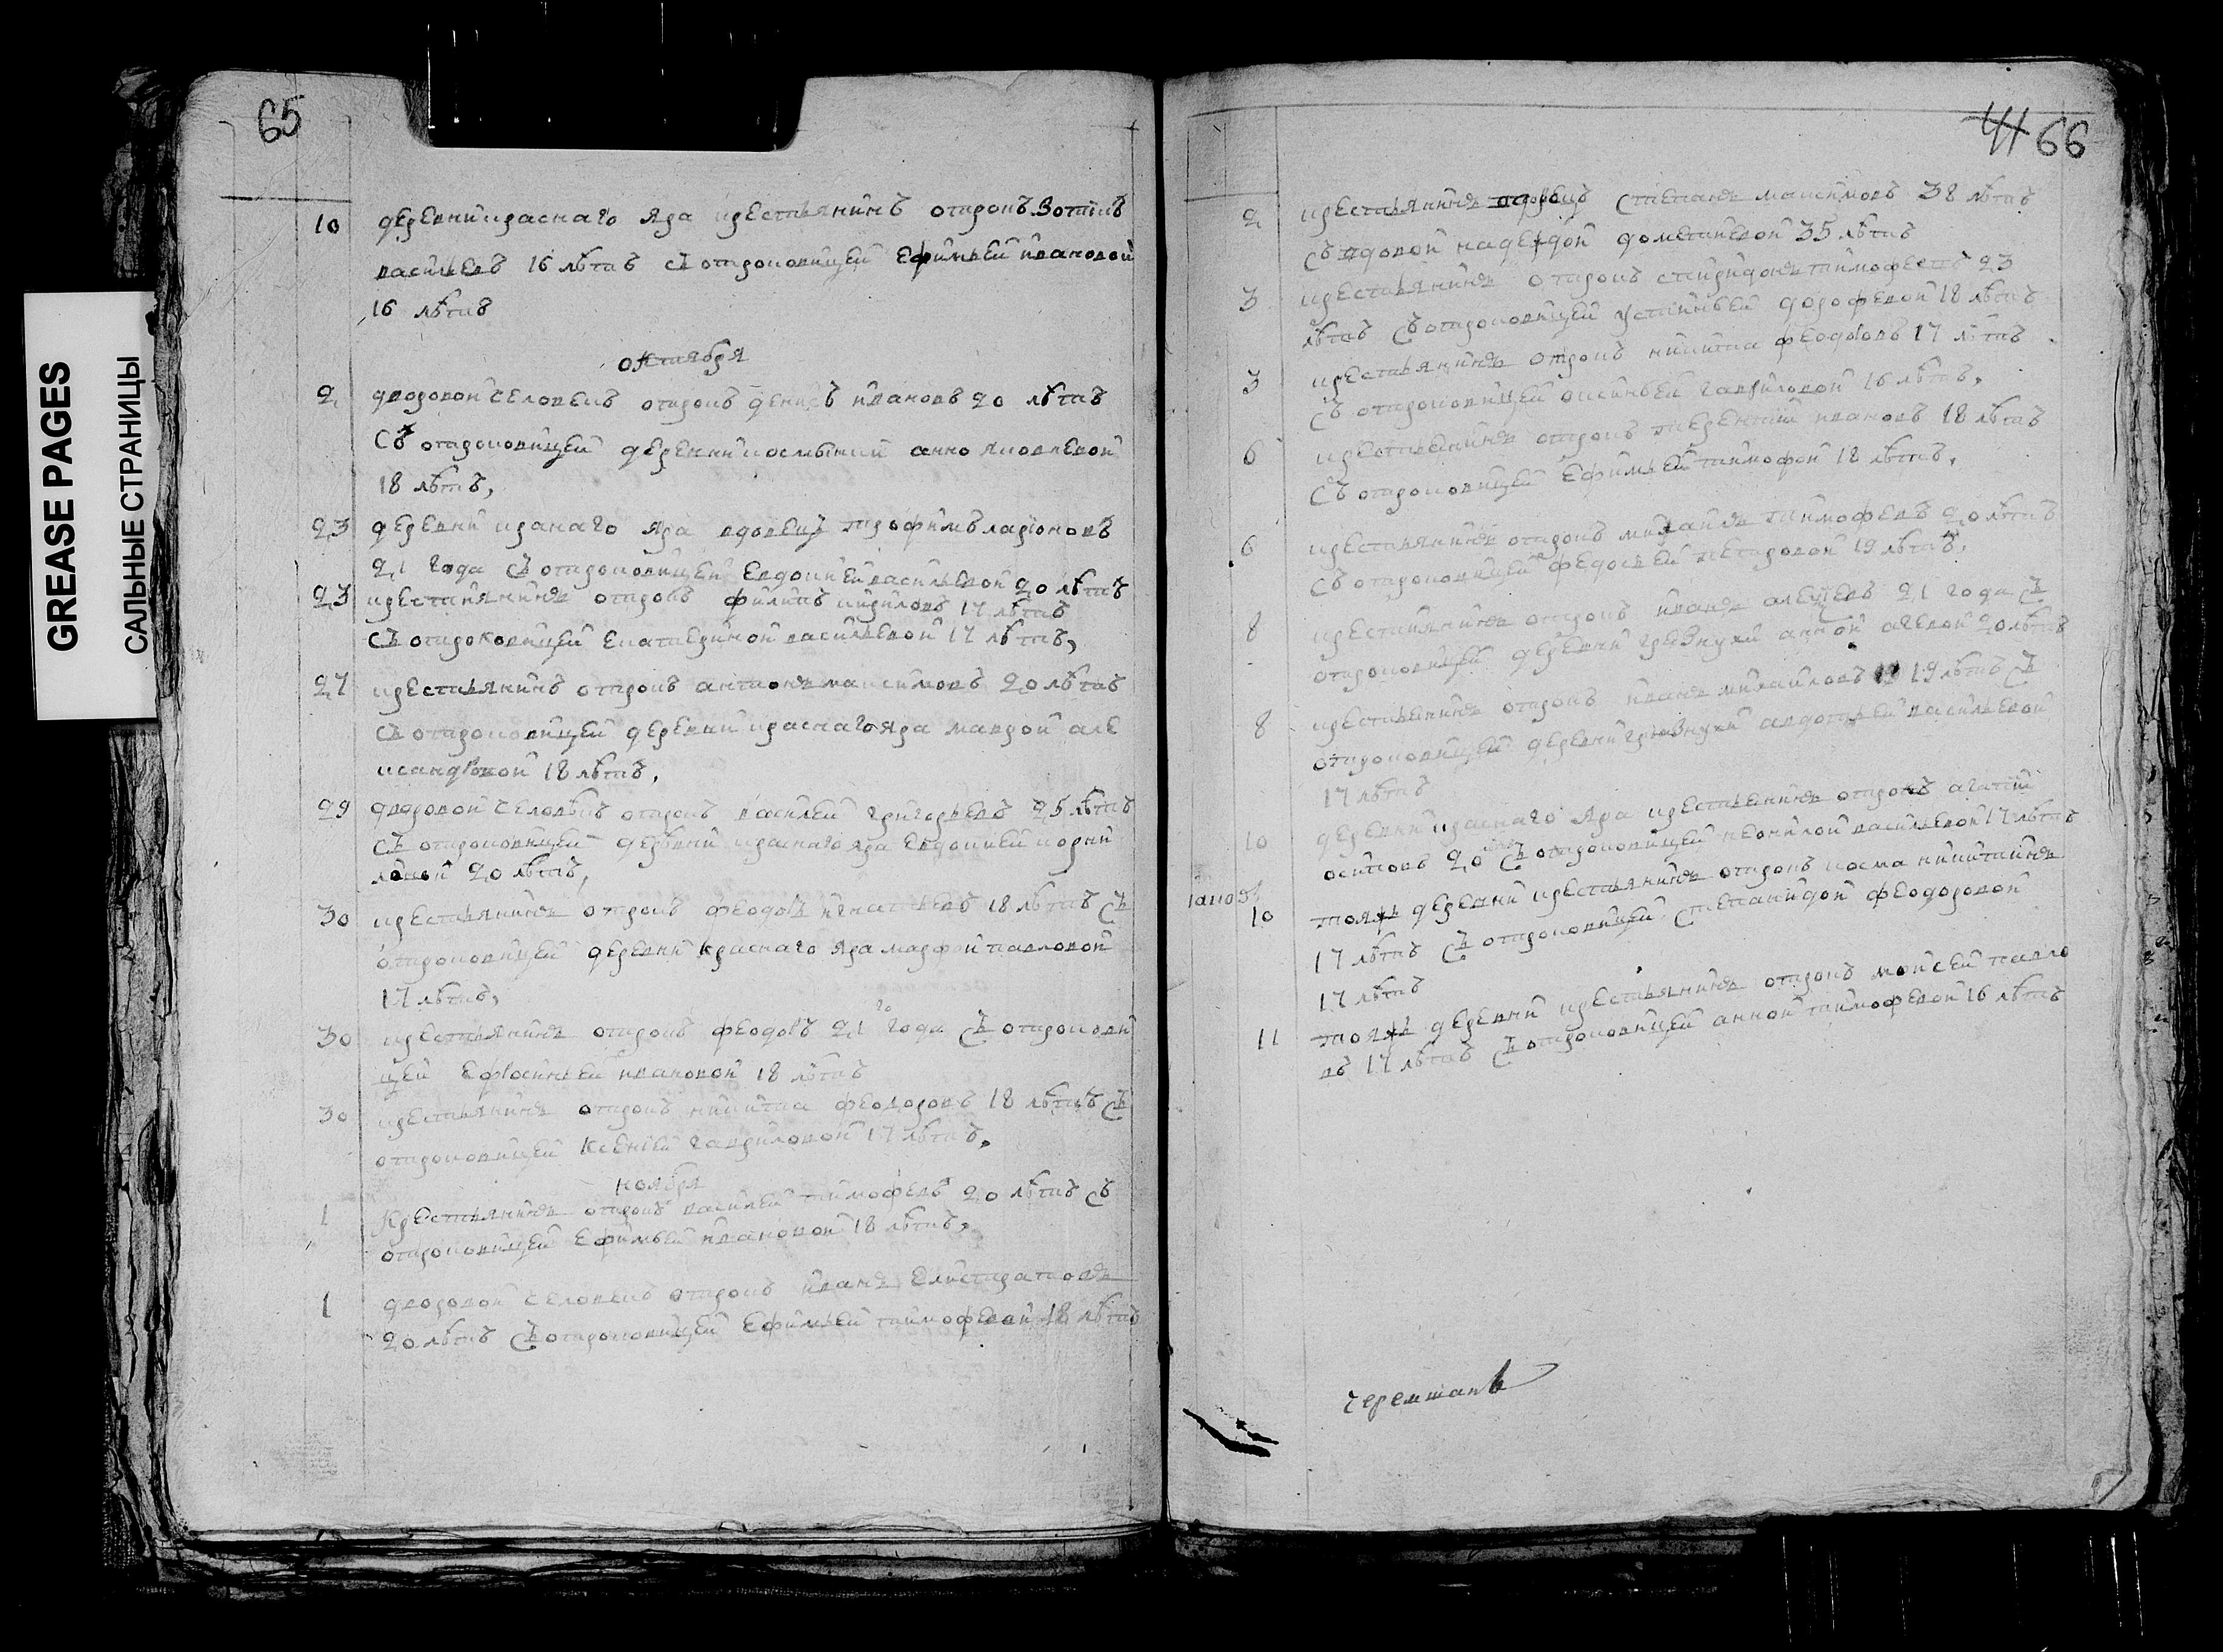 GREASE PAGES
САЛЬНЫЕ СТРАНИЦЫ
65
10 деревни краснаго Яра крестьянинъ отрокъ Зотикъ
васильевъ 16 лѣтъ съ отроковицей Ефимьей ивановой
16 лѣтъ
октября
2 дворовой человекъ отрокъ денисъ ивановъ 20 лѣтъ
Съ отроковицей деревни анно яковлевой
18 лѣтъ,
23 деревни кранаго Яра вдовецъ трофимъ ларионовъ
21 года съ отроковицей Евдокией васильевой 20 лѣтъ
23 крестиянинъ отрокъ филипъ кириловъ 17 лѣтъ
съ отроковицей Екатериной васильевой 17 лѣтъ,
27 крестьянинъ отрокъ антонъ максимовъ 20 лѣтъ
съ отроковицей деревни краснаго яра маврой але
ксандровой 18 лѣтъ,
29 дворовой человѣкъ отрокъ василей григорьевъ 25 лѣтъ
съ отроковицей деревни краснаго яра Евдокией корни
ловой 20 лѣтъ,
30 крестьянинъ отрокъ феодоръ игнатьевъ 18 лѣтъ съ
отроковицей деревни краснаго Яра марфой павловой
17 лѣтъ,
30 крестьянинъ отрокъ феодоръ 21 года съ отрокови
цей Ефросиньей ивановой 18 лѣтъ
30 крестьянинъ отрокъ никита феодоровъ 18 лѣтъ съ
отроковицей Ксенией гавриловой 17 лѣтъ,
ноября
1 Крестьянинъ отрокъ василей тимофевъ 20 лѣтъ съ
отроковицей Ефимьей ивановой 18 лѣтъ,
1 дворовой человекъ отрокъ иванъ Елистратовъ
20 лѣтъ съ отроковицей Ефимьей тимофевой 18 лѣтъ
41 66
2 крестьянинъ Степанъ максимовъ 38 лѣтъ
съ вдовой надеждой 35 лѣтъ
3 крестьянинъ отрокъ спиридонъ тимофеевъ 23
лѣтъ съ отроковицей устиньей дорофевой 18 лѣтъ
3 крестьянинъ отрокъ никита феодоровъ 17 лѣтъ
Съ отроковицей оксиньей гавриловой 16 лѣтъ,
6 крестьенинъ отрокъ терентий ивановъ 18 лѣтъ
Съ отроковицей Ефимьей тимофой 18 лѣтъ,
6 крестьянинъ отрокъ михаилъ тимофевъ 20 лѣтъ
Съ отроковицей федосьей петровой 19 лѣтъ,
8 крестьянинъ отрокъ иванъ алексевъ 21 года съ
отроковицей деревни грезнухи анной агевой 20 лѣтъ
8 крестьенинъ отрокъ иванъ михаиловъ 19 лѣтъ съ
отроковицей деревни грязнухи авдотьей васильевой
17 лѣтъ
10 деревни краснаго Яра крестьенинъ отрокъ агапий
осиповъ 20 съ отроковицей неонилой васильевой 17 лѣтъ
10 тояжъ деревни крестьянинъ отрокъ косма никитинъ
17 лѣтъ съ отроковицей Степанидой феодоровой
17 лѣтъ
11 тояжъ деревни крестьянинъ отрокъ моисей павло
въ 17 лѣтъ съ отроковицей анной тимофевой 16 лѣтъ
черемшанъ